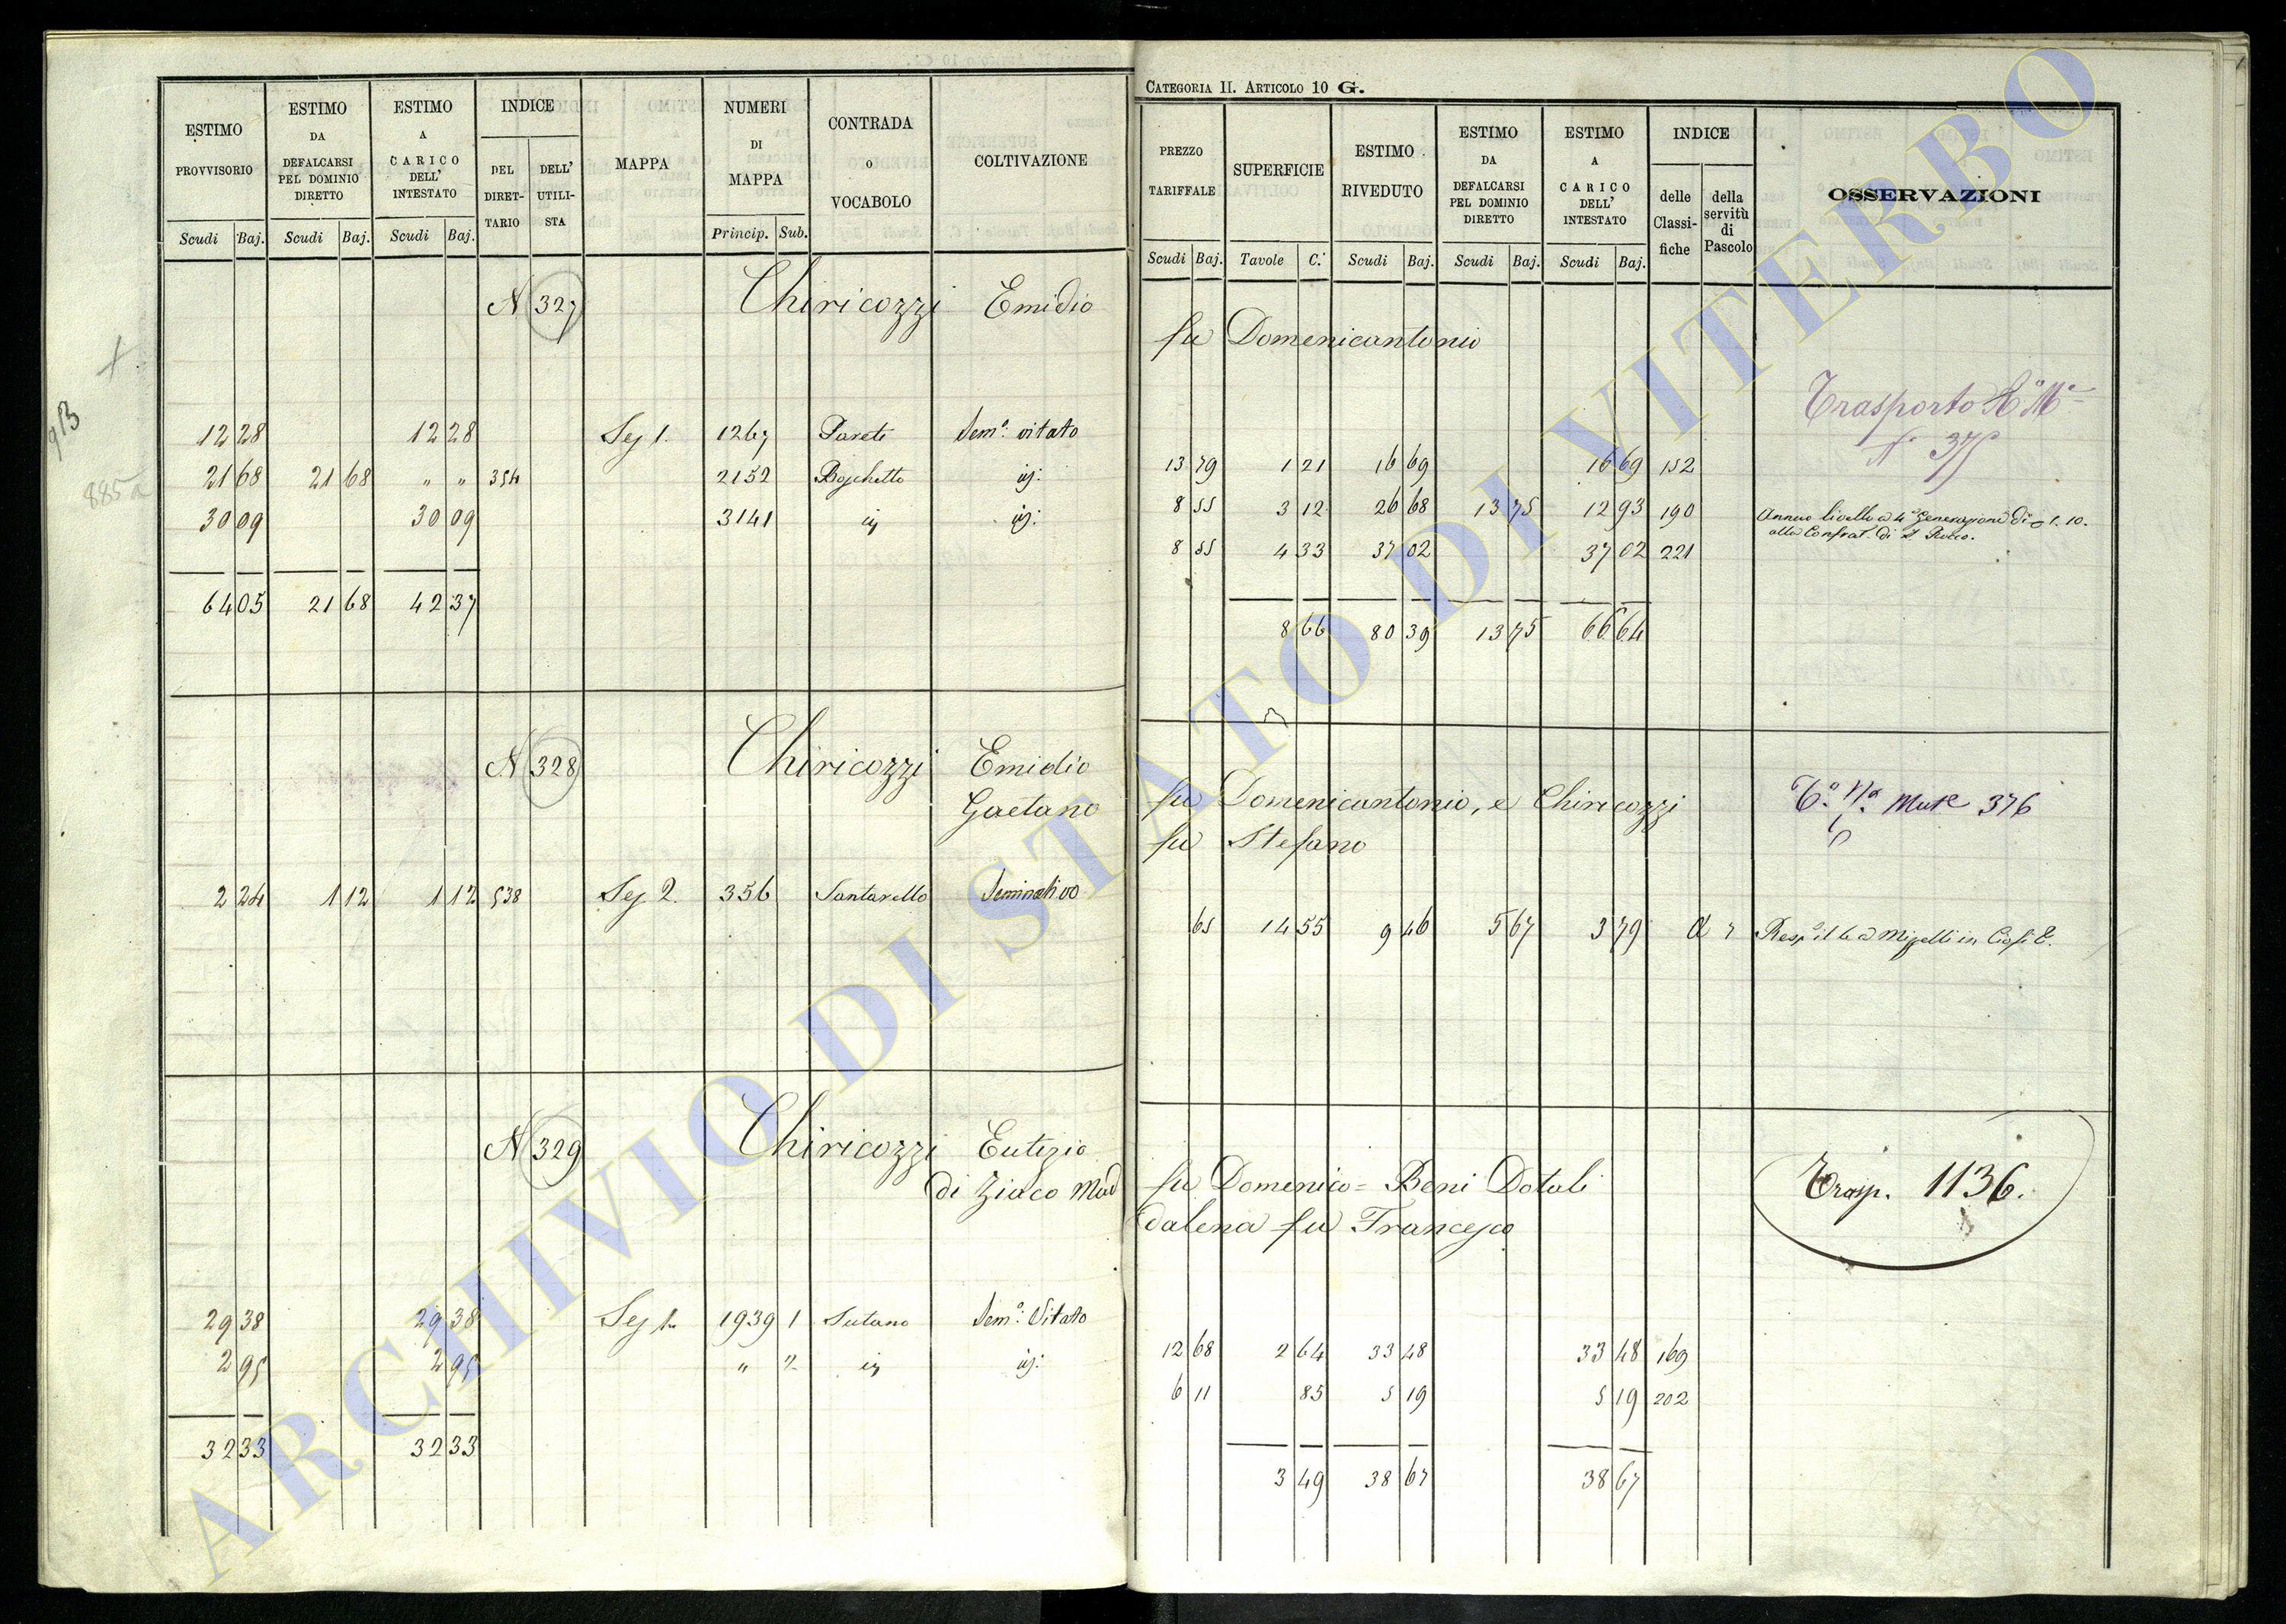 CATEGORIA II. ARTICOLO 10 G.
ESTIMO PROVVISORIO
ESTIMO DA DEFALCARSI PEL DOMINIO DIRETTO
ESTIMO A CARICO DELL' INTESTATO
INDICE
DEL DIRET-TARIO
DELL' UTILI-STA
MAPPA
NUMERI DI MAPPA
CONTRADA o VOCABOLO
COLTIVAZIONE
Scudi Baj. Scudi Baj. Scudi Baj. Princip. Sub.
PREZZO TARIFFALE
SUPERFICIE
ESTIMO RIVEDUTO
ESTIMO DA DEFALCARSI PEL DOMINIO DIRETTO
ESTIMO A CARICO DELL' INTESTATO
INDICE
delle Classi-fiche
della servitù di Pascolo
OSSERVAZIONI
Scudi Baj. Tavole C. Scudi Baj. Scudi Baj. Scudi Baj.
N 327 Chiricozzi Emidio fu Domenicantonio
Trasporto
N. 375
12 28 12 28 Sez 1. 1267 Parete Sem.o vitato 13 79 1 21 16 69 16 69 152
21 68 21 68 " " 354 2152 Boschetto id: 8 55 3 12 26 68 13 75 12 93 190 Annuo livello a 4a Generazione di 1.10.
alla Confrat. di S Rocco.
30 09 30 09 3141 id id: 8 55 4 33 37 02 37 02 221
64 05 21 68 42 37 8 66 80 39 13 75 66 64
N 328 Chiricozzi Emidio fu Domenicantonio, e Chiricozzi
Gaetano fu Stefano
376
2 24 1 12 1 12 538 Sez 2. 356 Santarello Seminativo 65 14 55 9 46 5 67 3 79
N 329 Chiricozzi Eutizio fu Domenico = Beni Dotali
di Ziaco Maddalena fu Francesco
Trasp. 1136.
29 38 29 38 Sez 1. 1939 1 Sutano Sem.o Vitato 12 68 2 64 33 48 33 48 169
2 95 2 95 " 2 id id: 6 11 85 5 19 5 19 202
32 33 32 33 3 49 38 67 38 67
885
ARCHIVIO DI STATO DI VITERBO